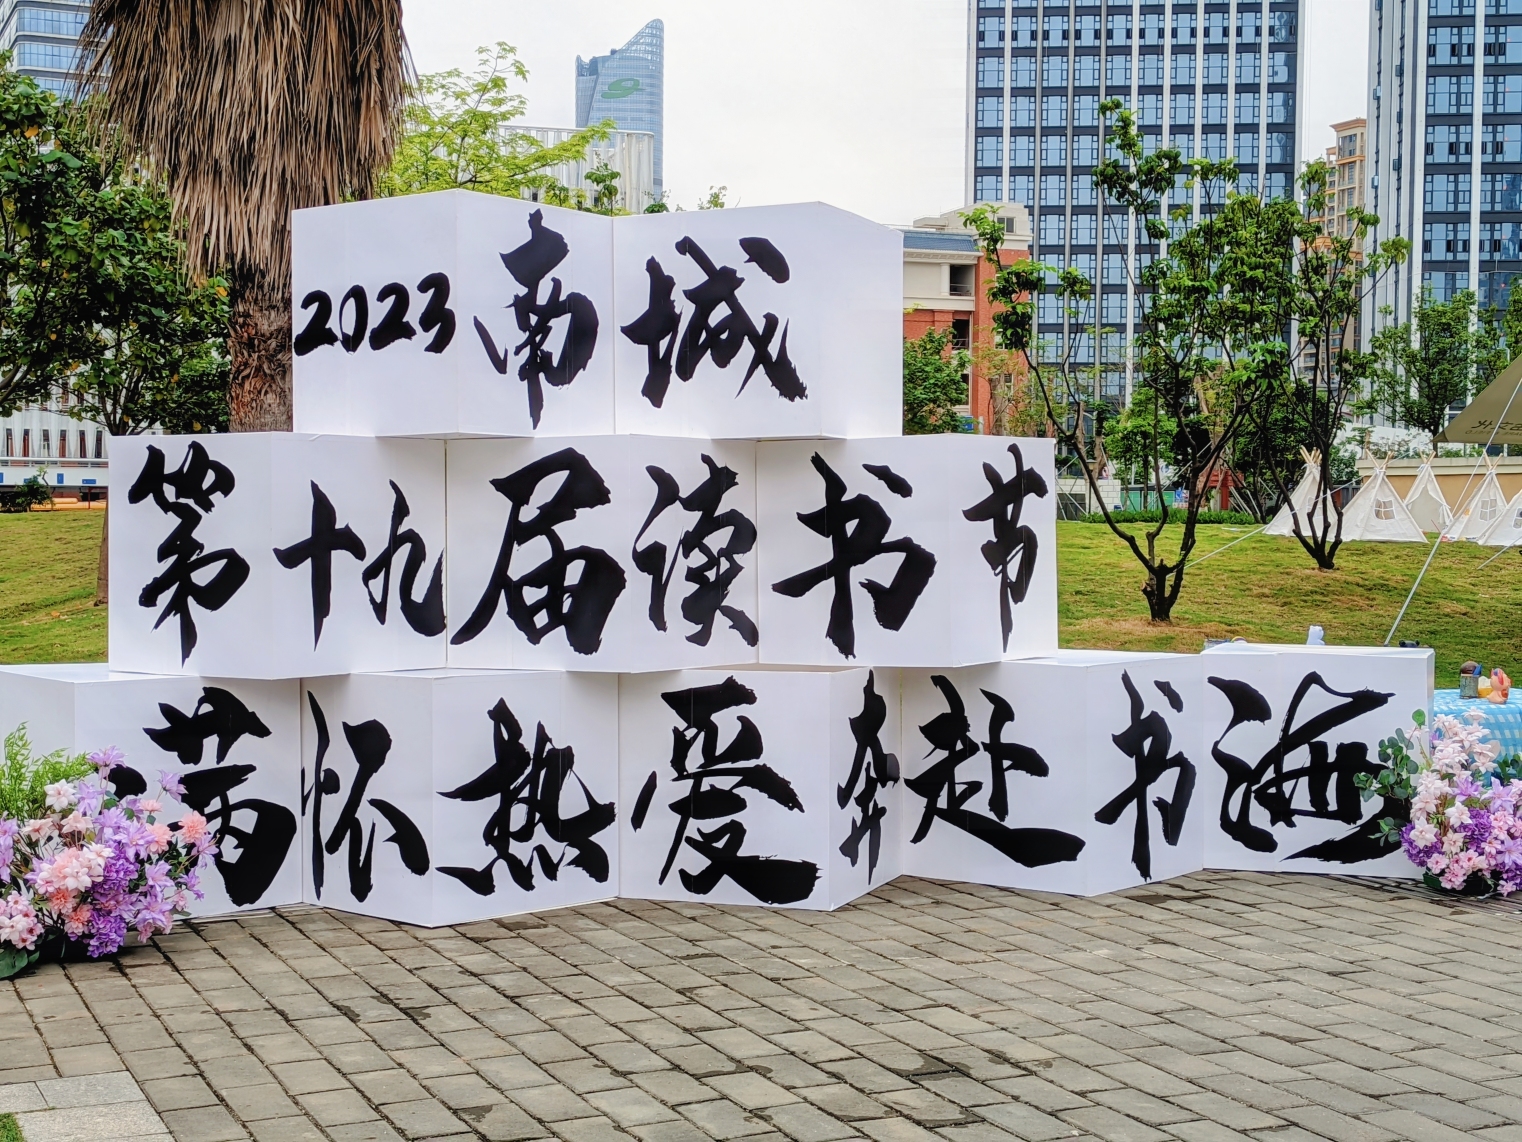 2023南城
第十九届读书节
满怀热爱奔赴书海